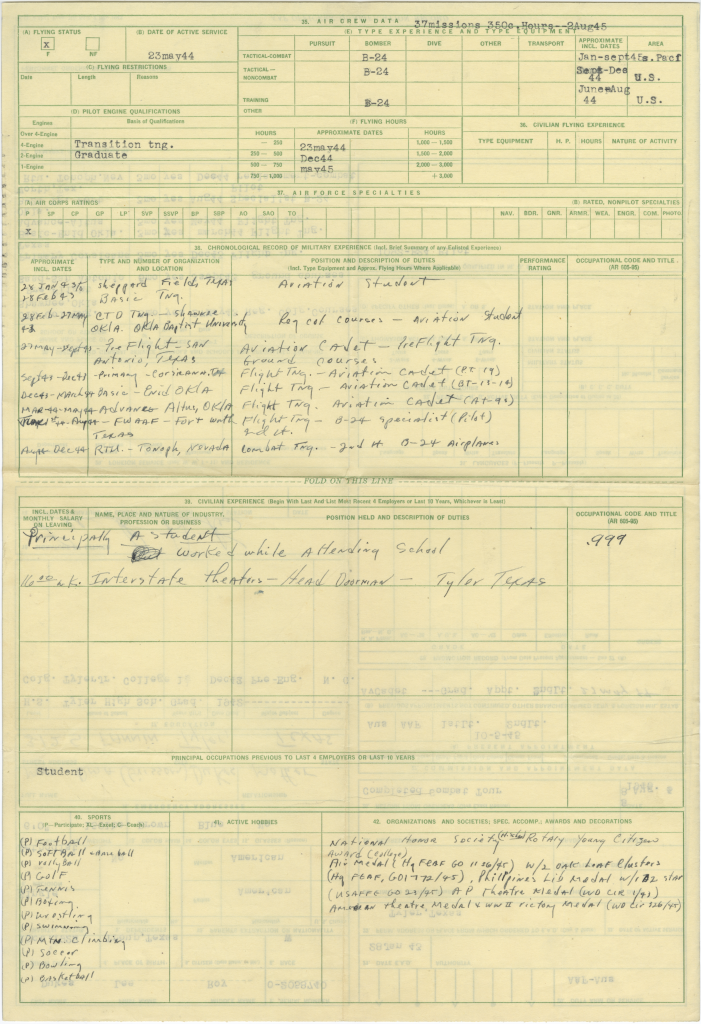 35. AIR CREW DATA 37missions 350c.Hours--2Aug45
(A) FLYING STATUS
X
F NF
(B) DATE OF ACTIVE SERVICE
23may44
(C) FLYING RESTRICTIONS
Date Length Reasons
(D) PILOT ENGINE QUALIFICATIONS
Engines Basis of Qualifications
Over 4-Engine
4-Engine Transition tng.
2-Engine Graduate
1-Engine
(E) TYPE EXPERIENCE AND TYPE EQUIPMENT
PURSUIT BOMBER DIVE OTHER TRANSPORT APPROXIMATE INCL. DATES AREA
TACTICAL-COMBAT B-24 Jan-sept45 Es. Pacf
TACTICAL—NONCOMBAT B-24 Sept-Dec 44 U.S.
TRAINING B-24 June-Aug 44 U.S.
OTHER
(F) FLYING HOURS
HOURS APPROXIMATE DATES HOURS
— 250 23may44 1,000 — 1,500
250 — 500 Dec44 1,500 — 2,000
500 — 750 may45 2,000 — 3,000
750 — 1,000 + 3,000
36. CIVILIAN FLYING EXPERIENCE
TYPE EQUIPMENT H. P. HOURS NATURE OF ACTIVITY
37. AIR FORCE SPECIALTIES
(A) AIR CORPS RATINGS (B) RATED, NONPILOT SPECIALTIES
P SP CP GP LP SVP SSVP BP SBP AO SAO TO NAV. BDR. GNR. ARMR. WEA. ENGR. COM. PHOTO
X
38. CHRONOLOGICAL RECORD OF MILITARY EXPERIENCE (Incl. Brief Summary of any Enlisted Experience)
APPROXIMATE INCL. DATES TYPE AND NUMBER OF ORGANIZATION AND LOCATION POSITION AND DESCRIPTION OF DUTIES (Incl. Type Equipment and Approx. Flying Hours Where Applicable) PERFORMANCE RATING OCCUPATIONAL CODE AND TITLE (AR 605-95)
28 JAN 43 to Sheppard Field, Texas Aviation Student
28 Feb 43 Basic Tng.
28 Feb - 27 May CTD Tng - Shawnee
43 OKLA. OKLA Baptist University Reg col courses - Aviation Student
27 May - Sept 43 - PreFlight - SAN Aviation CAdet - PreFlight Tng.
Antonio, Texas Ground Courses
Sept 43 - Dec 43 - Primary - Corsicana, TX Flight Tng. - Aviation Cadet (PT 19)
Dec 43 - March 44 Basic - Enid OKLA Flight Tng - Aviation Cadet (BT-13-14)
MAR 44 - May 44 Advance Altus, OKLA Flight Tng Aviation Cadet (AT-9)
44 - Aug 44 - FWAAF - Fort worth Flight Tng - B-24 Specialist (Pilot)
Texas 2nd Lt.
Aug 44 Dec 44 RTU. - Tonopah, NEVADA Combat Tng. - 2nd Lt B-24 Airplanes
FOLD ON THIS LINE
39. CIVILIAN EXPERIENCE (Begin With Last And List Most Recent 4 Employers or Last 10 Years, Whichever is Least)
INCL. DATES & MONTHLY SALARY ON LEAVING NAME, PLACE AND NATURE OF INDUSTRY, PROFESSION OR BUSINESS POSITION HELD AND DESCRIPTION OF DUTIES OCCUPATIONAL CODE AND TITLE (AR 605-95)
Principally A Student .999
worked while Attending School
16.00 wk. Interstate theaters - Head Doorman - Tyler Texas
PRINCIPAL OCCUPATIONS PREVIOUS TO LAST 4 EMPLOYERS OR LAST 10 YEARS
Student
40. SPORTS
(P—Participate; XL—Excel; C—Coach)
(P) Football
(P) Softball & Baseball
(P) Volleyball
(P) Golf
(P) Tennis
(P) Boxing
(P) Wrestling
(P) Swimming
(P) Mtn. Climbing
(P) Soccer
(P) Bowling
(P) Basketball
41. ACTIVE HOBBIES
42. ORGANIZATIONS AND SOCIETIES; SPEC. ACCOMP.; AWARDS AND DECORATIONS
National Honor Society Rotary Young Citizens
Award (College)
Air Medal (Hq FEAF GO 1126/45) W/2 oak Leaf Clusters
(Hq FEAF, GO 1772/45), Philippines Lib Medal w/ star
(USAFFE GO 23/45) AP Theatre Medal (WD CIR 1/43)
American theatre Medal & WW II victory Medal (WD CIR